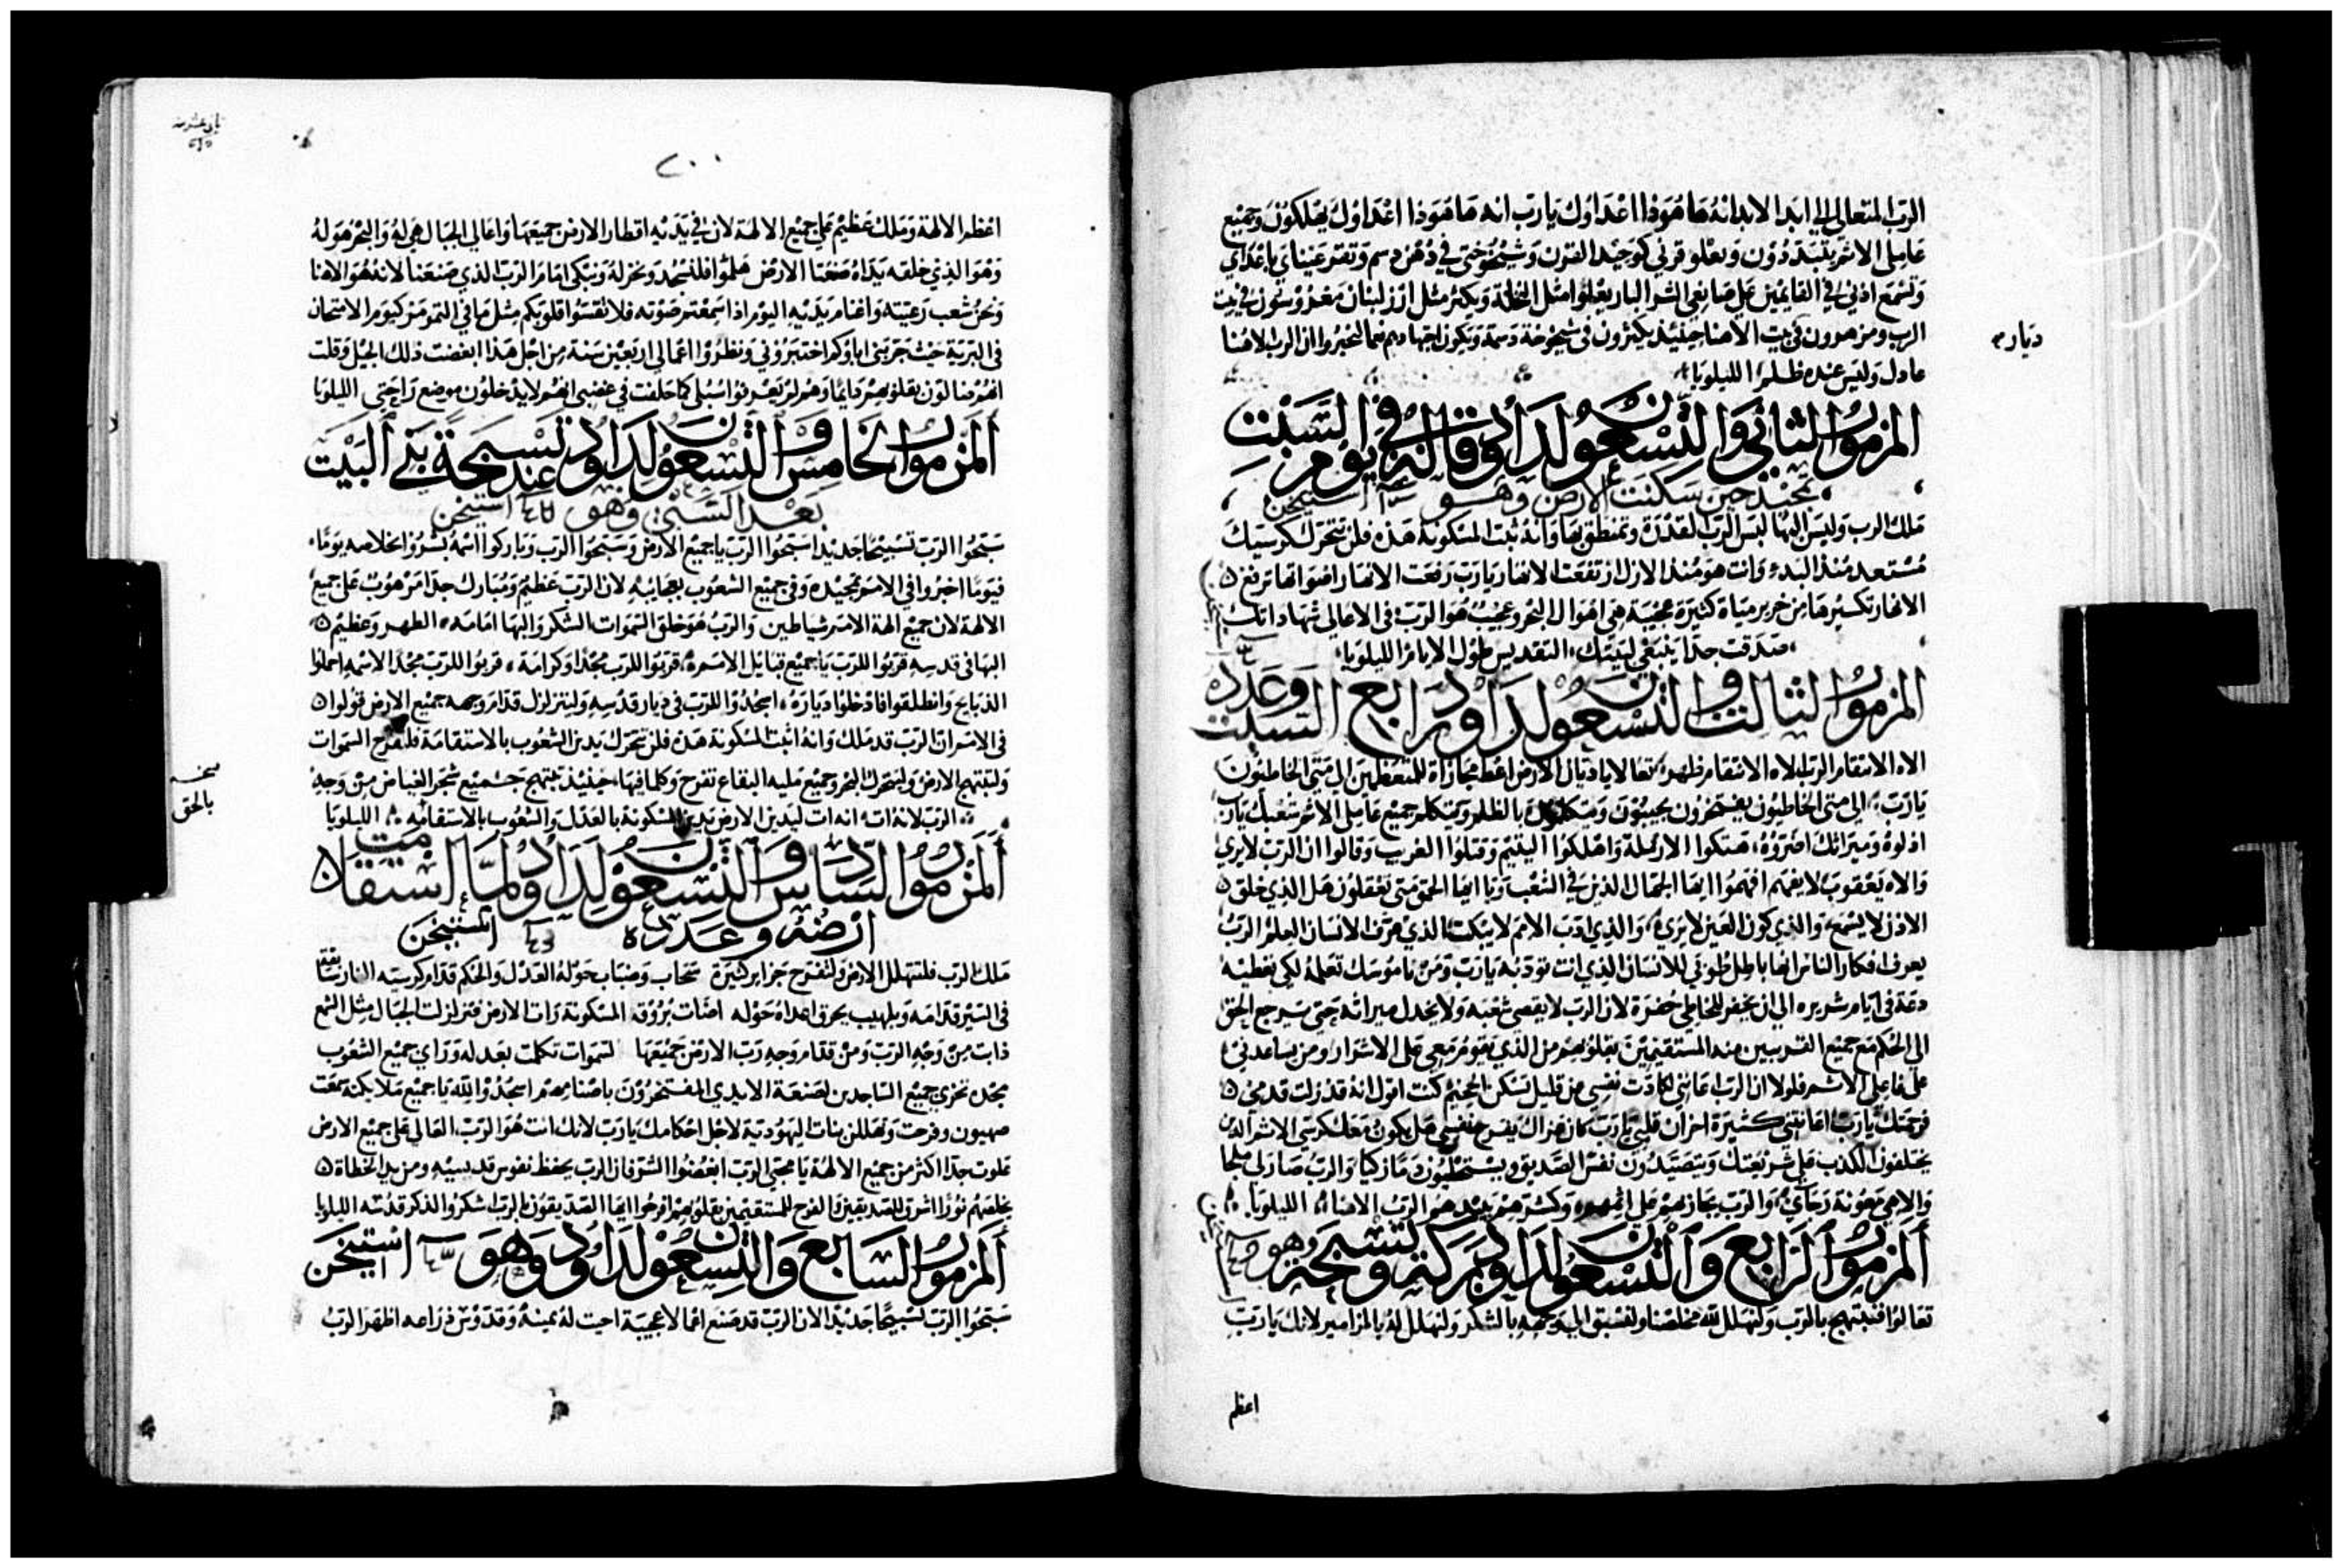 الرب المتعالي الي ابد الابد انه ها هوذا اعداوك يارب انه ها هوذا اعداوك يهلكون وجميع
عاملي الاثم يتبددون ويعلو قرني كوحيد القرن وشيخوختي في دهن دسم وتقر عيناي باعداي
وتسمع اذني في القايمين علي صانعي الشر البار يعلوا مثل النخلة ويكثر مثل ارز لبنان مغروسون في بيت
ديار
الرب ومزهرون في بيت الاهنا حينيذ يكثرون في شيخوخة دسمة ويكون اجتهادهم نعما ليخبروا ان الرب الاهنا
عادل وليس عنده ظلم الليلويا
المزمور الثاني والتسعون لداود قاله في يوم السبت
تمجيد حين سكنت الارض وهو استيخن
ملك الرب ولبس البها لبس الرب القدرة وتمنطق بها وانه ثبت المسكونة هذه فلن تتحرك كرسيك
مستعد منذ البدء وانت هو منذ الازل ارتفعت الانهار يارب رفعت الانهار اصواتها ترفع
الانهار تكسيرها من خرير مياه كثيرة عجيبة هي اهوال البحر وعجيب هو الرب في الاعالي شهاداتك
صدقت جدا ينبغي لبيتك التقديس طول الايام الليلويا
المزمور الثالث والتسعون لداود رابع السبت وعدده
الاه الانتقام الرب الاه الانتقام ظهر تعالا يا ديان الارض اعط مجازاة للمتعظمين الي متي الخاطيون
يارب الي متي الخاطيون يفتخرون يجيبون ويتكلمون بالظلم ويتكلم جميع عاملي الاثم شعبك يارب
اذلوه وميراثك اضروه هتكوا الارملة واهلكوا اليتيم وقتلوا الغريب وقالوا ان الرب لا يري
والاه يعقوب لا يفهم افهموا ايها الجهال الذين في الشعب ويا ايها الحمق متي تعقلون هل الذي خلق
الاذن لا يسمع والذي كون العين لا يري والذي ادب الامم لا يبكت الذي عرف الانسان العلم الرب
يعرف افكار الناس انها باطل طوبي للانسان الذي انت تودبه يارب ومن ناموسك تعلمه لكي تعطيه
دعة في ايام شريره الي ان يحفر للخاطي حفرة لان الرب لا يقصي شعبه ولا يخذل ميراثه حتي يرجع الحق
الي الحكم مع جميع القريبين منه المستقيمين بقلوبهم من الذي يقوم معي علي الاشرار ومن يساعدني
علي فاعلي الاثم فلولا ان الرب اعانني لكادت نفسي عن قليل تسكن الجحيم كنت اقول انه قد زلت قدمي
فرحمتك يارب اعانتني كثيرة احزان قلبي يارب كان عزاك يفرح نفسي هل يكون معك كرسي الاثم الذين
يختلقون الكذب علي شريعتك ويتصيدون نفس الصديق ويستخطيون دما زكيا والرب صار لي ملجا
والاهي معونة رجاي والرب يجازيهم علي اثمهم وكثرتهم يبيد هو الرب الاهنا الليلويا
المزمور الرابع والتسعون لداود بركة وتسبحة وهو
تعالوا فنبتهج بالرب ولنهلل لله مخلصنا ولنسبق الي وجهه بالشكر ولنهلل له بالمزامير لانك يارب
اعظم
٢٠٠
اعظم الالهة وملك عظيم علي جميع الالهة لان في يديه اقطار الارض جميعها واعالي الجبال هي له والبحر هو له
وهو الذي خلقه يداه صنعتا الارض هلموا فلنسجد ونخر له ونبكي امام الرب الذي صنعنا لانه هو الاهنا
ونحن شعب رعيته واغنام يديه اليوم اذا سمعتم صوته فلا تقسوا قلوبكم مثل ما في التمرمر كيوم الامتحان
في البرية حيث جربني اباوكم اختبروني ونظروا اعمالي اربعين سنة من اجل هذا ابغضت ذلك الجيل وقلت
انهم ضالون بقلوبهم دايما وهم لم يعرفوا سبلي كما حلفت في غضبي انهم لا يدخلون موضع راحتي الليلويا
المزمور الخامس والتسعون لداود تسبحة عند بني البيت
بعد السبي وهو استيخن
سبحوا الرب تسبيحا جديدا سبحوا الرب يا جميع الارض وسبحوا الرب وباركوا اسمه بشروا بخلاصه يوما
فيوما اخبروا في الامم بمجيده وفي جميع الشعوب بعجايبه لان الرب عظيم ومبارك جدا مرهوب علي جميع
الالهة لان جميع الهة الامم شياطين والرب هو خلق السموات الشكر والبها امامه الطهر وعظيم
البها في قدسه قربوا للرب يا جميع قبايل الامم قربوا للرب مجدا وكرامة قربوا للرب مجدا لاسمه احملوا
الذبايح وانطلقوا فادخلوا دياره اسجدوا للرب في ديار قدسه ولتتزلزل قدام وجهه جميع الارض قولوا
في الامم ان الرب قد ملك وانه اثبت المسكونة هذه فلن تتحرك يدين الشعوب بالاستقامة فلتفرح السموات
ولتبتهج الارض وليتحرك البحر وجميع مليه البقاع تفرح وكلما فيها حينيذ تبتهج جميع شجر الغياض من وجه
نسخه
بالحق
الرب لانه ات انه ات ليدين الارض يدين المسكونة بالعدل والشعوب بالاستقامة الليلويا
المزمور السادس والتسعون لداود لما استقامت
ارضه وعدده استيخن
ملك الرب فلتتهلل الارض ولتفرح جزاير كثيرة سحاب وضباب حوله العدل والحكم قدام كرسيه النار سابقة
في السير قدامه وبلهيب يحرق اعداه حوله اضات بروقه المسكونة رات الارض فتزلزلت الجبال مثل الشمع
ذابت من وجه الرب ومن قدام وجه رب الارض جميعها السموات تكلمت بعدله وراي جميع الشعوب
مجده تخزي جميع الساجدين لصنعة الايدي المفتخرون باصنامهم اسجدوا لله يا جميع ملايكته سمعت
صهيون وفرحت وتهللن بنات اليهودية لاجل احكامك يارب لانك انت هو الرب العالي علي جميع الارض
علوت جدا اكثر من جميع الالهة يا محبي الرب ابغضوا الشر فان الرب يحفظ نفوس قديسيه ومن يد الخطاة
يخلصهم نورا اشرق للصديقين والفرح للمستقيمين بقلوبهم افرحوا ايها الصديقون بالرب اشكروا لذكر قدسه الليلويا
المزمور السابع والتسعون لداود وهو استيخن
سبحوا الرب تسبيحا جديدا لان الرب قد صنع اعمالا عجيبة احيت له يمينه وقدوس ذراعه اظهر الرب